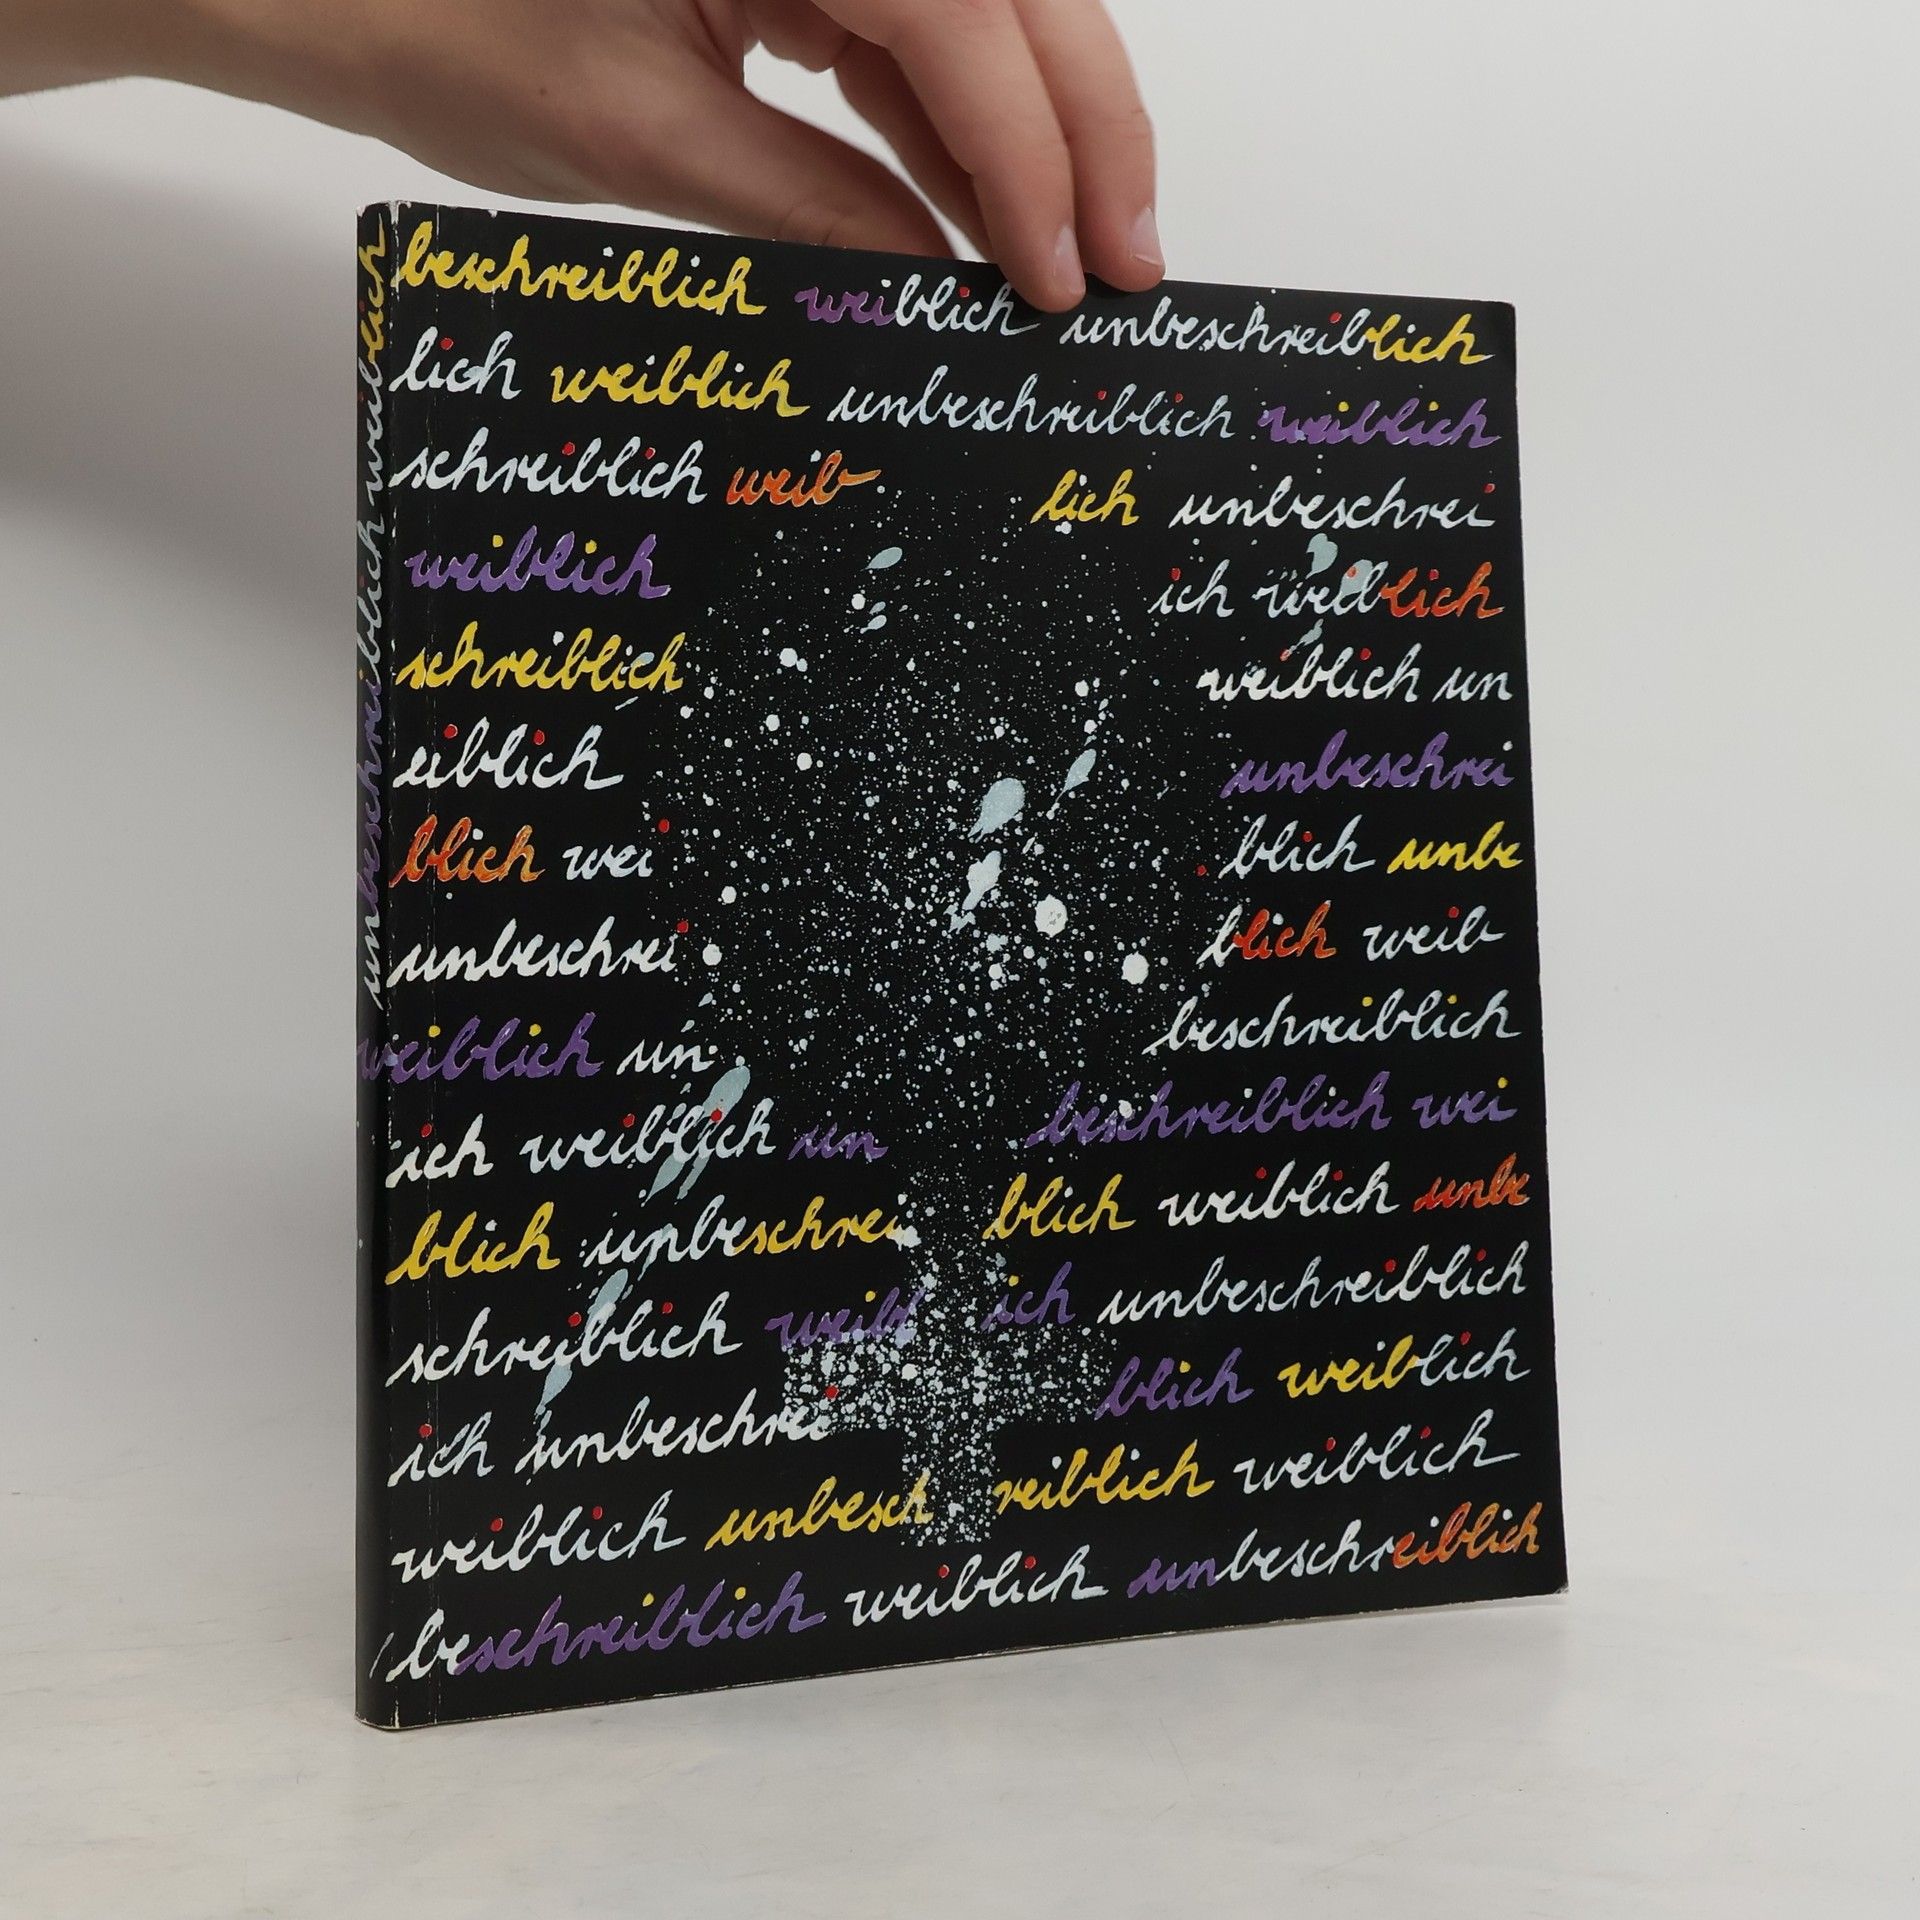 unbeschreiblich weiblich
beschreiblich weiblich unbeschreiblich
lich weiblich unbeschreiblich weiblich
schreiblich weib lich unbeschrei
weiblich ich weiblich
schreiblich weiblich un
eiblich unbeschrei
blich wei blich unbe
unbeschrei blich weib
weiblich un beschreiblich
ich weiblich un beschreiblich wei
blich unbeschrei blich weiblich unbe
schreiblich weibl ich unbeschreiblich
ich unbeschrei blich weiblich
weiblich unbesch reiblich weiblich
beschreiblich weiblich unbeschreiblich